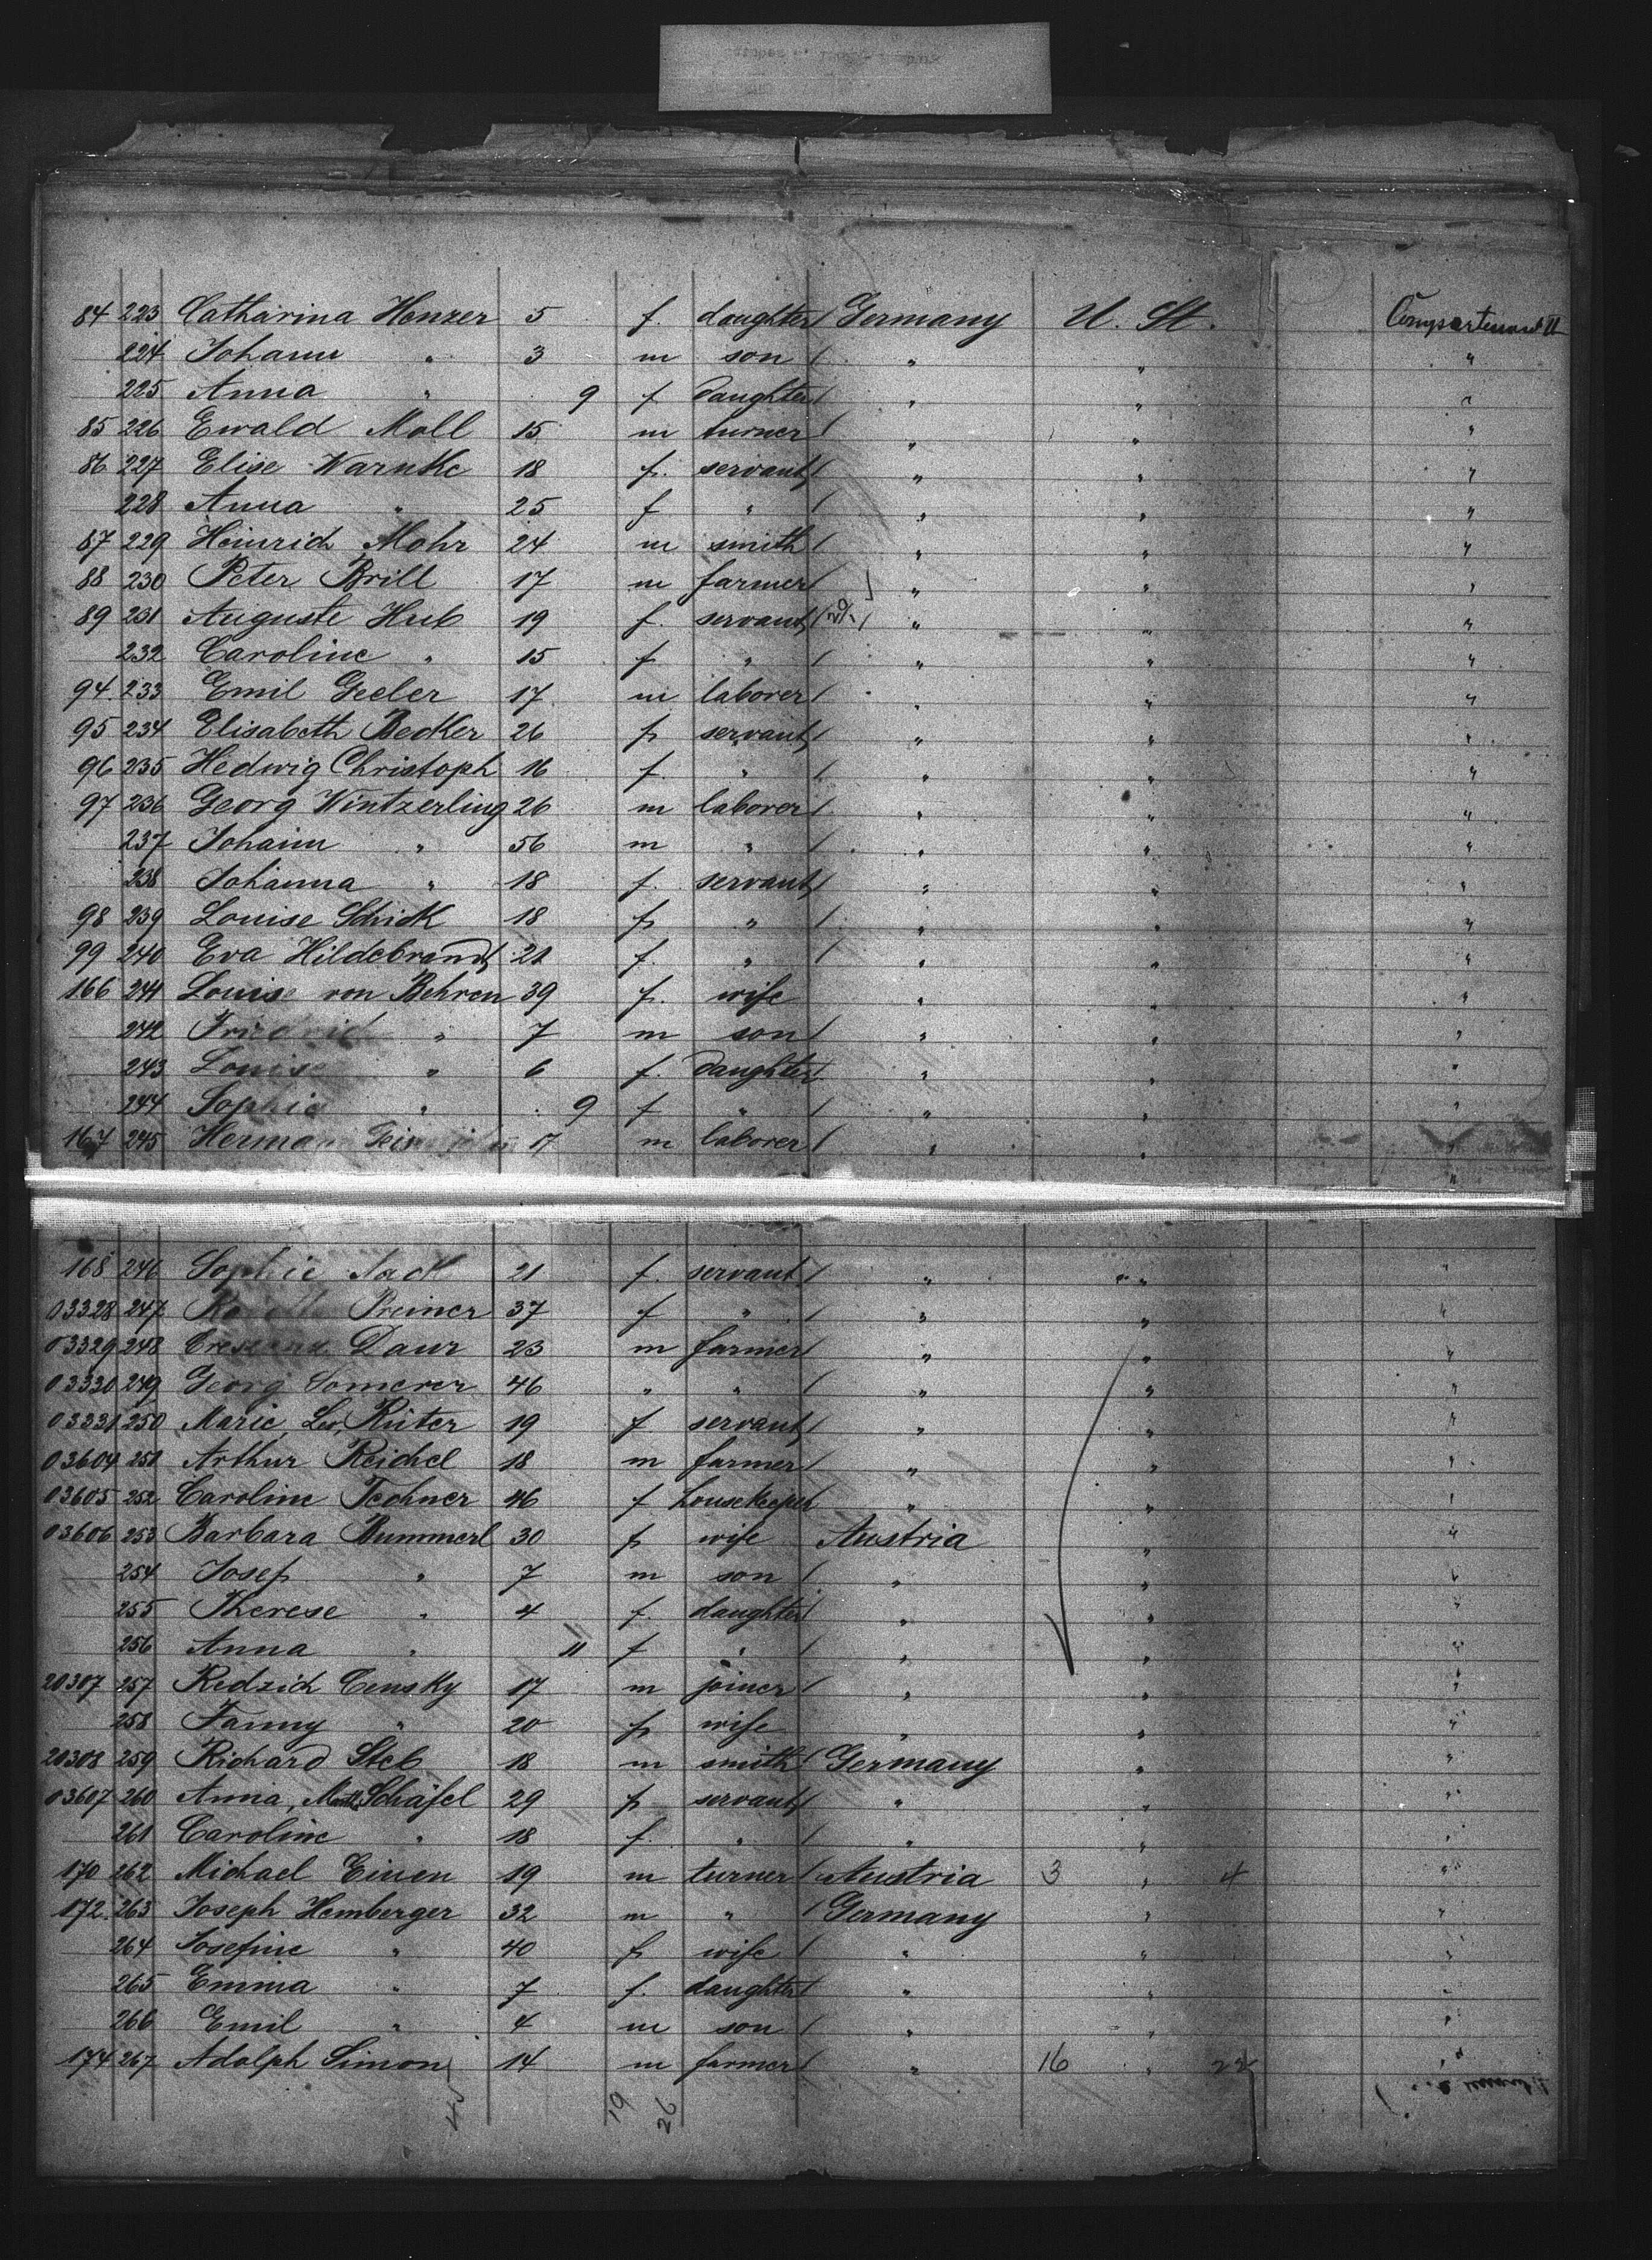 84 223 Catharina Honzer 5 f. daughter Germany U. St. Compartement II
224 Johann " 3 m son " " "
225 Anna " 9 f daughter " " "
85 226 Ewald Moll 15 m turner " " "
86 227 Elise Warnke 18 f. servant " " "
228 Anna " 25 f " " " "
87 229 Heinrich Mohr 24 m smith " " "
88 230 Peter Brill 17 m farmer " " "
89 231 Auguste Hub 19 f. servant " " "
232 Caroline " 15 f " " " "
94. 233 Emil Geeler 17 m laborer " " "
95 234 Elisabeth Becker 26 f servant " " "
96 235 Hedwig Christoph 16 f. " " " "
97 236 Georg Wintzerling 26 m laborer " " "
237 Johann " 56 m " " " "
238 Johanna " 18 f. servant " " "
98 239 Louise Schick 18 f " " " "
99 240 Eva Hildebrand 21 f. " " " "
166 241 Louise von Behren 39 f. wife " " "
242 Friedrich " 7 m son " " "
243 Louise " 6 f. daughter " " "
244 Sophie " 9 f " " " "
167 245 Hermann 17 m laborer " " "
168 246 Sophie Sack 21 f. servant " " "
03328 247 Preiner 37 f " " " "
03329 248 Daur 23 m farmer " " "
03330 249 Georg Somerer 46 " " " " "
03331 250 Marie, Rüter 19 f servant " " "
03604 251 Arthur Reichel 18 m farmer " " "
03605 252 Caroline Techner 46 f housekeeper " " "
03606 253 Barbara Bummerl 30 f wife Austria " "
254 Josef " 7 m son " " "
255 Therese " 4 f. daughter " " "
256 Anna " 11 f " " " "
20307 257 Redzich Censky 17 m joiner " " "
258 Fanny " 20 f wife " " "
20308 259 Richard Steb 18 m smith Germany " "
03607 260 Anna, Schäfel 29 f servant " " "
261 Caroline " 18 f. " " " "
170 262 Michael Einen 19 m turner Austria 3 " 4 "
172. 263 Joseph Hemberger 32 m " Germany " "
264 Josefine " 40 f wife " " "
265 Emma " 7 f. daughter " " "
266 Emil " 4 m son " " "
174 267 Adolph Simon 14 m farmer " 16 " 22 "
45 19 26